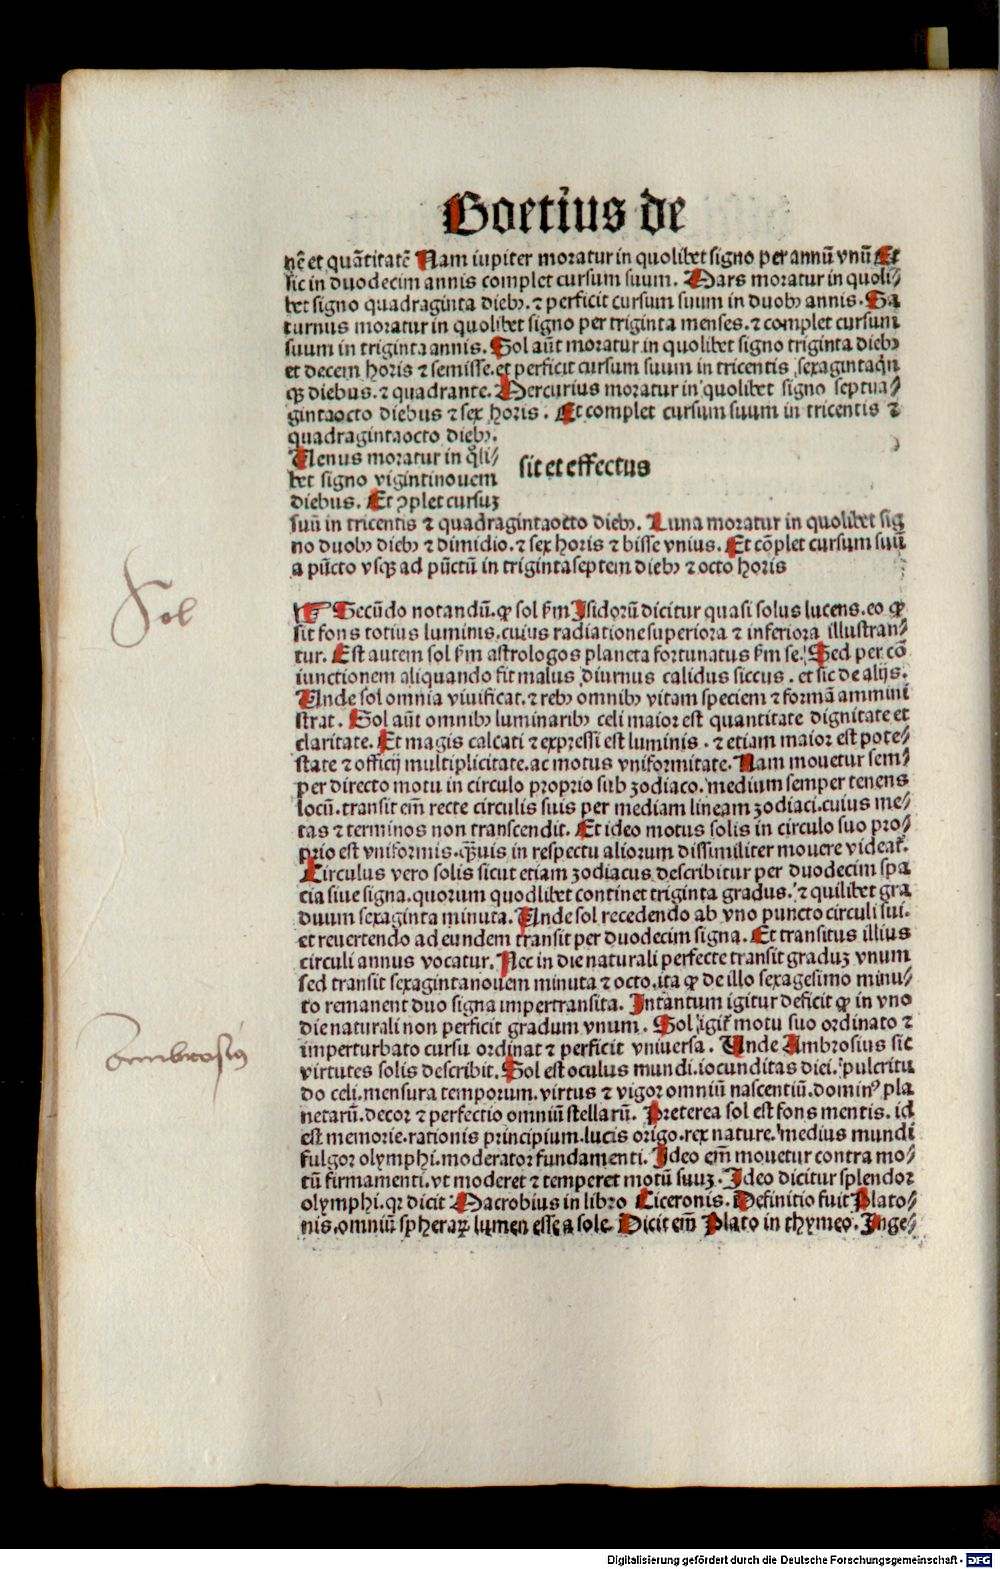 Boetius de
nē et quātitatē Nam iupiter moratur in quolibet signo per annū vnū Et
sic in duodecim annis complet cursum suum. Mars moratur in quoli⸗
bet signo quadraginta dieb⁊ ⁊ perficit cursum suum in duob⁊ annis. Sa
turnus moratur in quolibet signo per triginta menses. ⁊ complet cursum
suum in triginta annis. Sol aūt moratur in quolibet signo triginta dieb⁊
et decem horis ⁊ semisse. et perficit cursum suum in tricentis sexagintaqn̄
qꝫ diebus. ⁊ quadrante. Mercurius moratur in quolibet signo septua⸗
gintaocto diebus ⁊ sex horis. Et complet cursum suum in tricentis ⁊
quadragintaocto dieb⁊.
Uenus moratur in qͦli⸗
bet signo vigintinouem
diebus. Et ꝯplet cursuꝫ
sit et effectus
suū in tricentis ⁊ quadragintaocto dieb⁊. Luna moratur in quolibet sig
no duob⁊ dieb⁊ ⁊ dimidio. ⁊ sex horis ⁊ bisse vnius. Et cōplet cursum suū
a pūcto vsqꝫ ad pūctū in trigintaseptem dieb⁊ ⁊ octo horis
Sol
☞ Secūdo notandū. ꝙ sol ẜm Isidorū dicitur quasi solus lucens. eo ꝙ
sit fons totius luminis. cuius radiatione superiora ⁊ inferiora illustran⸗
tur. Est autem sol ẜm astrologos planeta fortunatus ẜm se. Sed per cō
iunctionem aliquando fit malus diurnus calidus siccus. et sic de alijs.
Unde sol omnia viuificat. ⁊ reb⁊ omnib⁊ vitam speciem ⁊ formā ammini
strat. Sol aūt omnib⁊ luminarib⁊ celi maior est quantitate dignitate et
claritate. Et magis calcati ⁊ expressi est luminis. ⁊ etiam maior est pote⸗
state ⁊ officij multiplicitate. ac motus vniformitate. Nam mouetur sem⸗
per directo motu in circulo proprio sub zodiaco. medium semper tenens
locū. transit em̄ recte circulis suis per mediam lineam zodiaci. cuius me⸗
tas ⁊ terminos non transcendit. Et ideo motus solis in circulo suo pro⸗
prio est vniformis. qͣꝫuis in respectu aliorum dissimiliter mouere videat̄.
Circulus vero solis sicut etiam zodiacus describitur per duodecim spa
cia siue signa. quorum quodlibet continet triginta gradus. ⁊ quilibet gra
duum sexaginta minuta. Unde sol recedendo ab vno puncto circuli sui.
et reuertendo ad eundem transit per duodecim signa. Et transitus illius
circuli annus vocatur. Nec in die naturali perfecte transit graduꝫ vnum
sed transit sexagintanouem minuta ⁊ octo. ita ꝙ de illo sexagesimo minu⸗
to remanent duo signa impertransita. Intantum igitur deficit ꝙ in vno
die naturali non perficit gradum vnum. Sol igit̄ motu suo ordinato ⁊
ambrosius
imperturbato cursu ordinat ⁊ perficit vniuersa. Unde Ambrosius sic
virtutes solis describit. Sol est oculus mundi. iocunditas diei. pulcritu
do celi. mensura temporum. virtus ⁊ vigor omniū nascentiū. dominꝰ pla
netarū. decor ⁊ perfectio omniū stellarū. Preterea sol est fons mentis. id
est memorie. rationis principium. lucis origo. rex nature. medius mundi
fulgor olymphi. moderator fundamenti. Ideo em̄ mouetur contra mo⸗
tū firmamenti. vt moderet ⁊ temperet motū suuꝫ. Ideo dicitur splendor
olymphi. qꝛ dicit Macrobius in libro Ciceronis. Definitio fuit Plato⸗
nis. omniū spheraꝝ lumen esse a sole. Dicit em̄ Plato in thymeo. Inge⸗
Digitalisierung gefördert durch die Deutsche Forschungsgemeinschaft - DFG